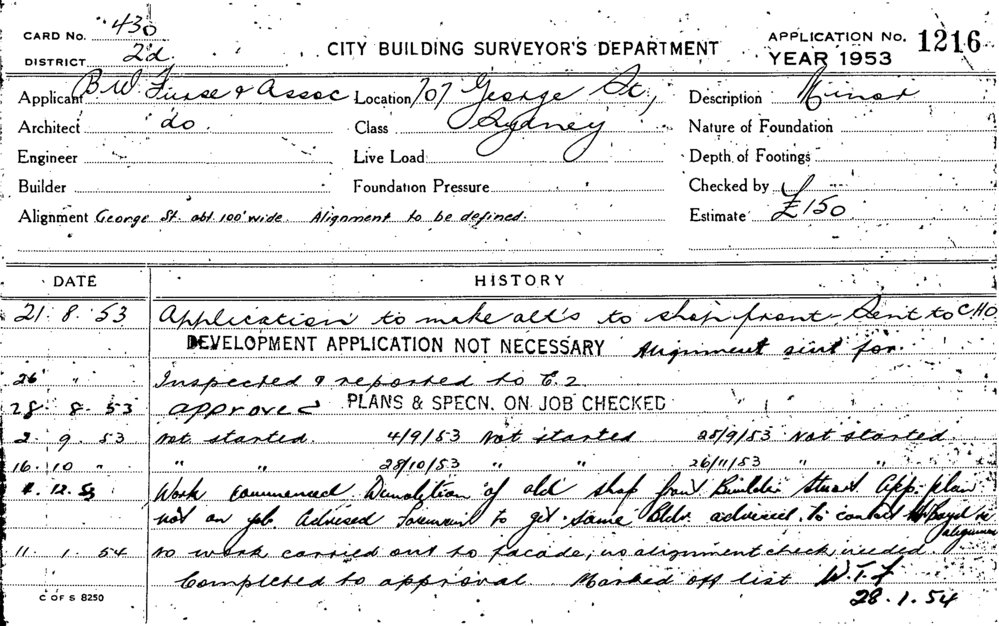 CARD No. 430
DISTRICT 2d.
CITY BUILDING SURVEYOR'S DEPARTMENT
APPLICATION No. 1216
YEAR 1953
Applicant B.W. Furse & Assoc Location 707 George St, Description Minor
Architect do. Class Sydney Nature of Foundation
Engineer Live Load Depth of Footings
Builder Foundation Pressure Checked by
Alignment George St. abt. 100' wide. Alignment to be defined. Estimate £150
DATE HISTORY
21. 8. 53 Application to make alt's to shop front. Sent to C.H.O.
DEVELOPMENT APPLICATION NOT NECESSARY Alignment sent for.
26 " Inspected & reported to E.2
28. 8. 53 approved PLANS & SPECN. ON JOB CHECKED
2. 9. 53 Not started. 4/9/53 Not started 25/9/53 Not started.
16. 10 " " " 28/10/53 " " 26/11/53 " "
4. 12. 53 Work commenced Demolition of old shop front Builder Stuart App. plan
not on job Advised Foreman to get same Bldr. advised to contact Mr Boyd re alignment
11. 1. 54 no work carried out to facade, no alignment check needed.
Completed to approval. Marked off list W.T.F
28.1.54
C OF S 8250